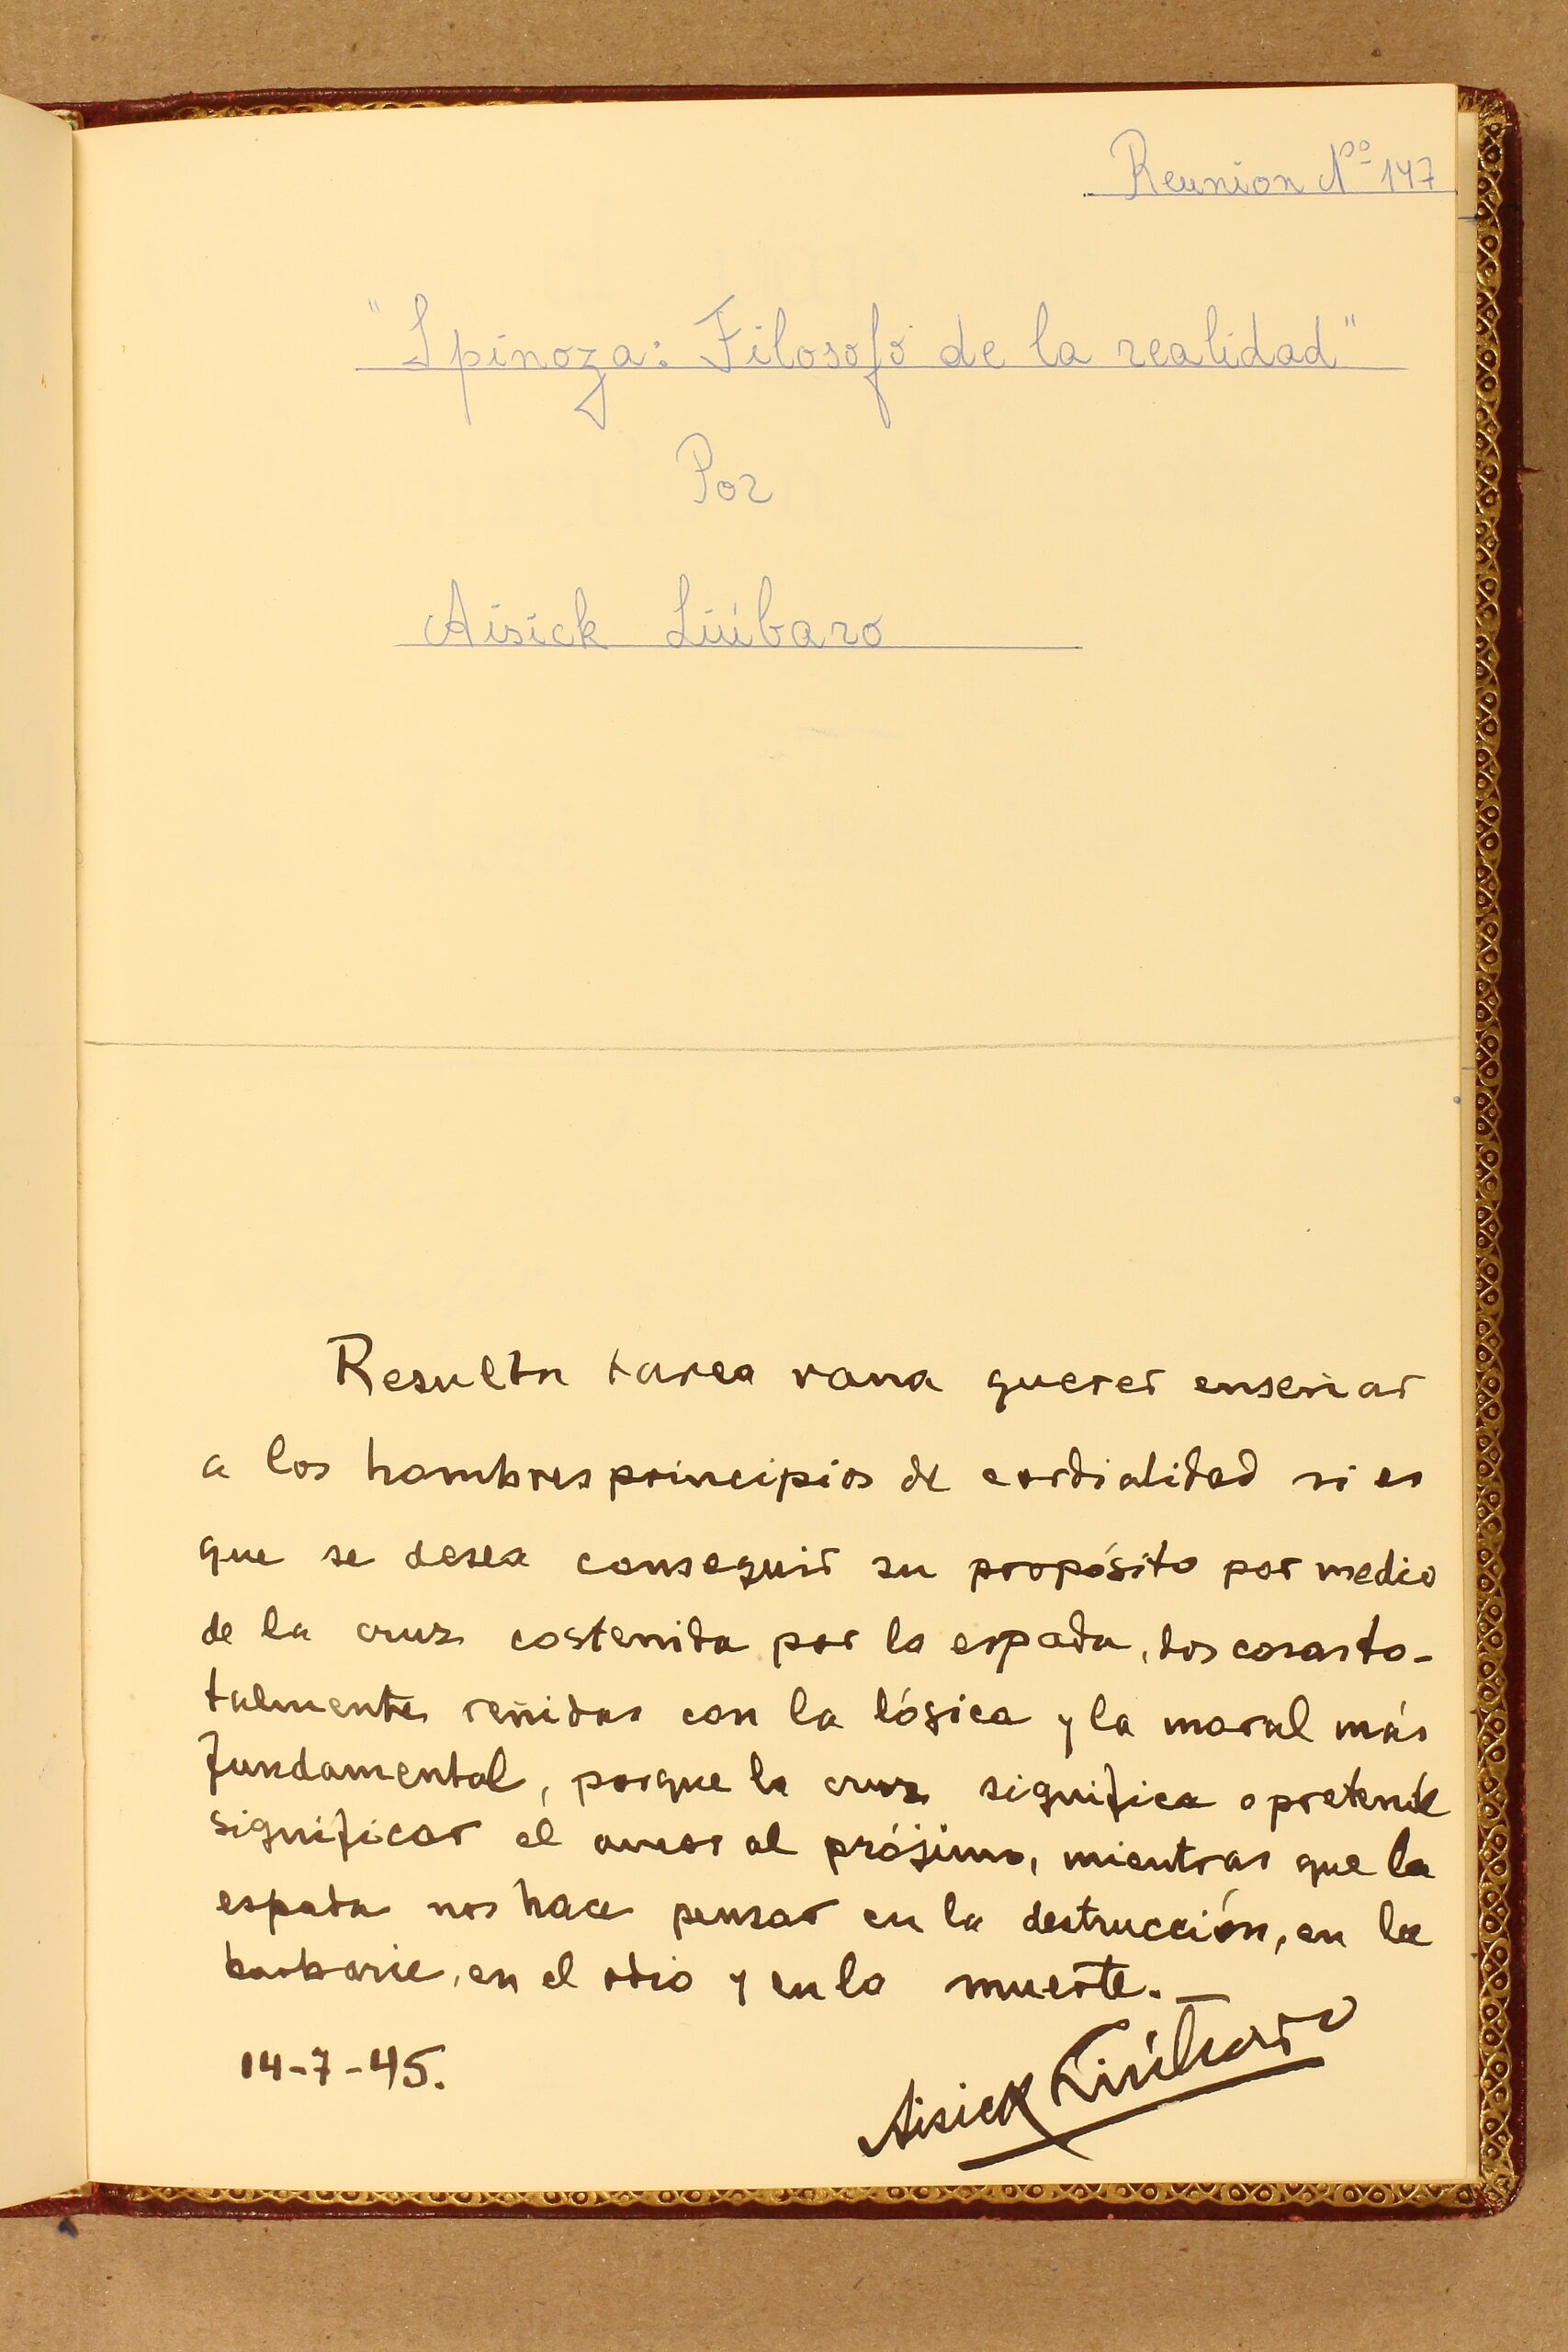 Reunion Nº 147
"Spinoza: Filosofo de la realidad"
Por
Aisick Liúbaro
Resulta tarea vana querer enseñar
a los hombres principios de cordialidad si es
que se desea conseguir su propósito por medio
de la cruz costenida por la espada, dos cosas to-
talmente reñidas con la lógica y la moral más
fundamental, porque la cruz significa o pretende
significar el amor al prójimo, mientras que la
espada nos hace pensar en la destrucción, en la
barbarie, en el odio y en la muerte.—
14-7-45.
Aisick Liúbaro